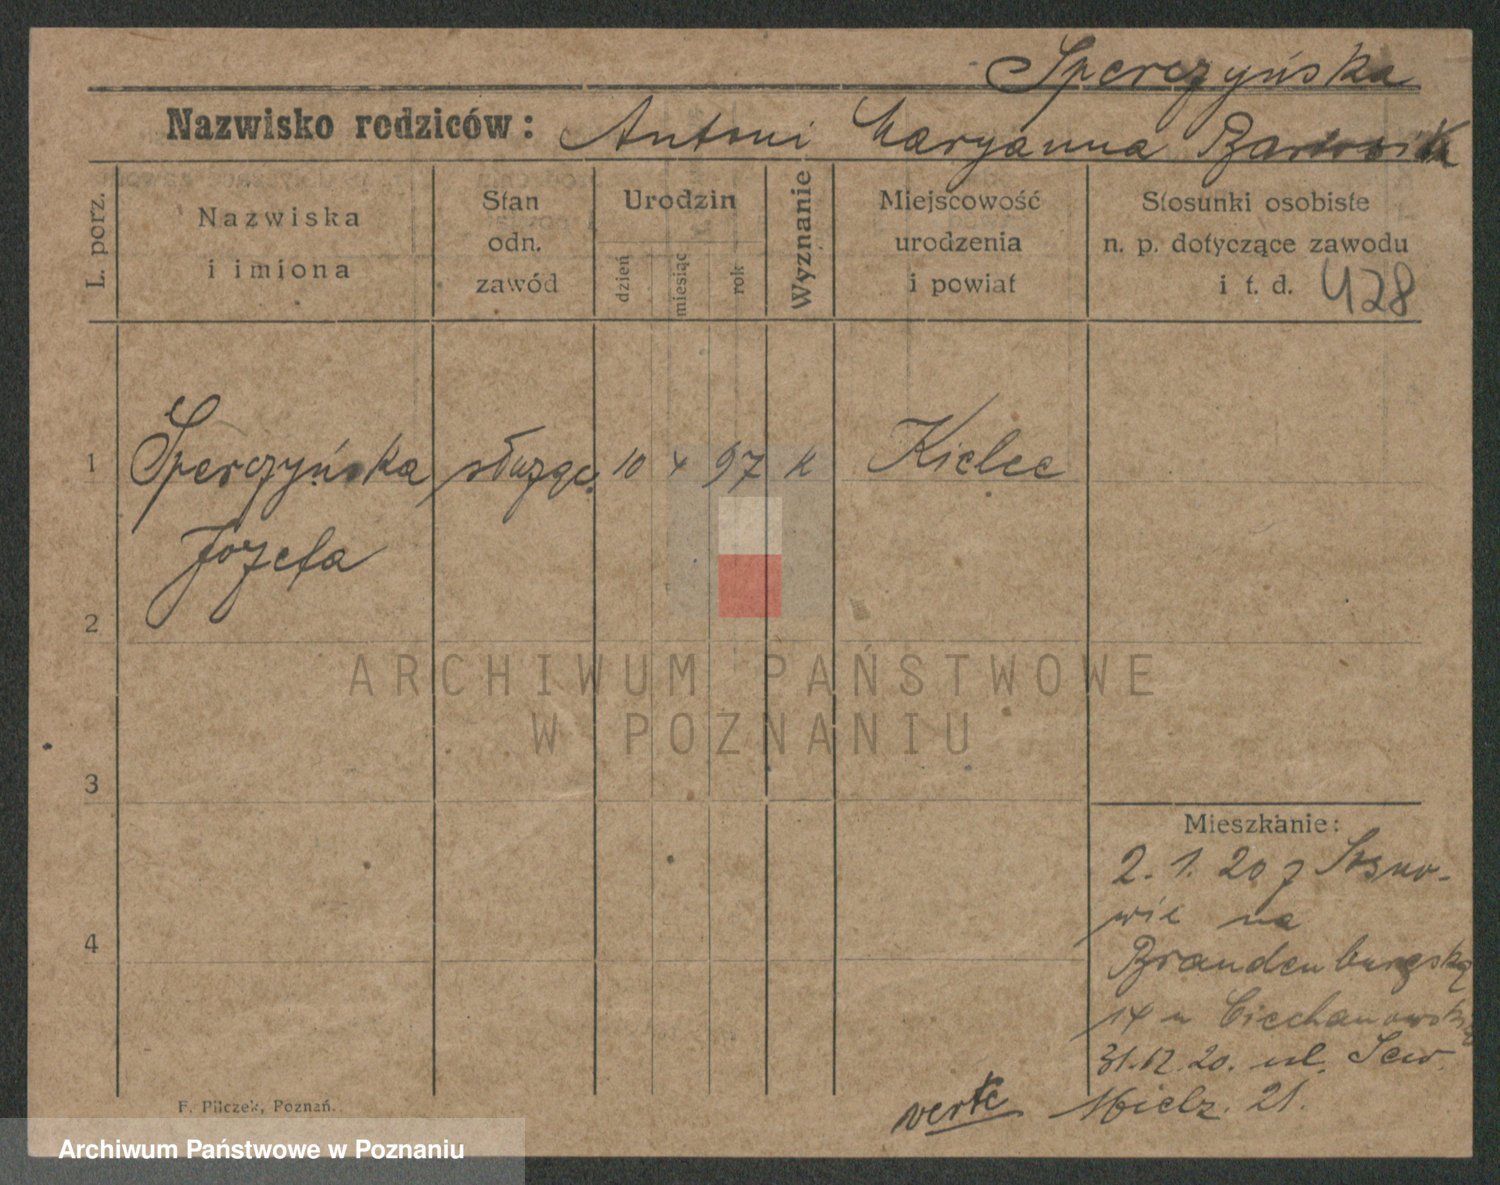 Sperczyńska
Nazwisko rodziców: Antoni Maryanna
L. porz.
Nazwiska
i imiona
Stan
odn.
zawód
Urodzin
dzień
miesiąc
rok
Wyznanie
Miejscowość
urodzenia
i powiat
Stosunki osobiste
n. p. dotyczące zawodu
i t. d. 428
1 Sperczyńska służąc. 10 4 97 k Kielce
Józefa
2
ARCHIWUM PAŃSTWOWE
W POZNANIU
3
Mieszkanie:
2. 1. 20 z Sosno-
wic na
4
Brandenburgską
14 u Ciechanowski
31.12.20. ul. Sew.
Mielż. 21.
verte
F. Pilczek, Poznań.
Archiwum Państwowe w Poznaniu